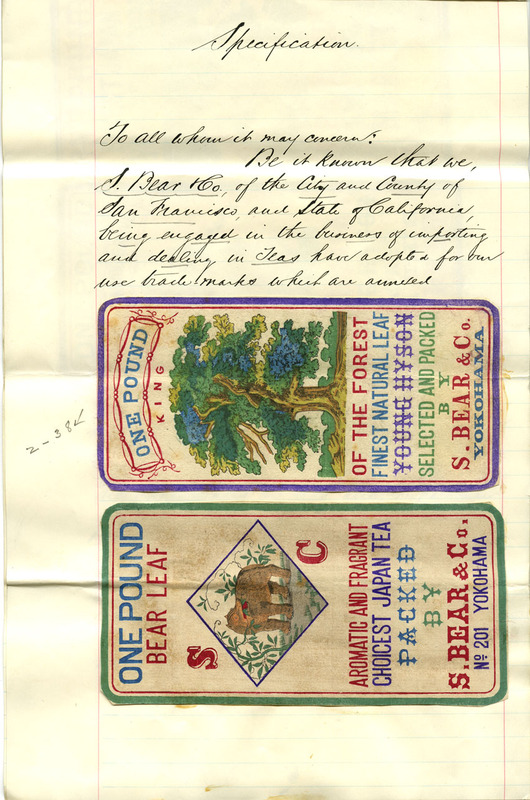 Specification.
To all whom it may concern:
Be it known that we,
S. Bear & Co., of the City and County of
San Francisco, and State of California,
being engaged in the business of importing
and dealing in Teas have adopted for our
use trade marks which are annexed
2-382
ONE POUND
KING
OF THE FOREST
FINEST NATURAL LEAF
YOUNG HYSON
SELECTED AND PACKED
BY
S. BEAR & Co.
YOKOHAMA
ONE POUND
BEAR LEAF
S C
AROMATIC AND FRAGRANT
CHOICEST JAPAN TEA
PACKED
BY
S. BEAR & Co.
No 201 YOKOHAMA